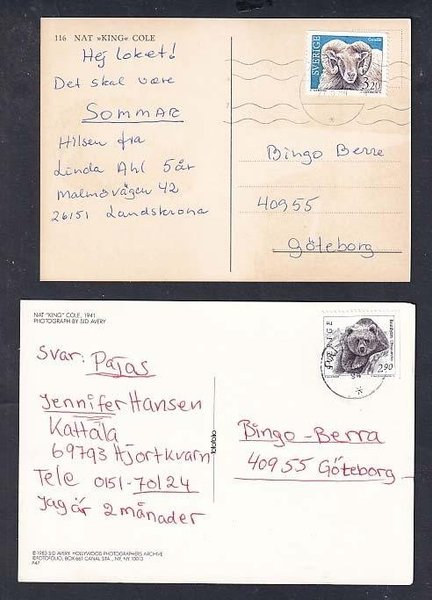 116 NAT »KING« COLE
Hej loket!
Det skal være
SOMMAR
Hilsen fra
Linda Ahl 5år
Malmövägen 42
26151 Landskrona
SVERIGE
3.20
Bingo Berre
40955
Göteborg
NAT "KING" COLE, 1941
PHOTOGRAPH BY SID AVERY
Svar: Pajas
Jennifer Hansen
Kattåla
69793 Hjortkvarn
Tele 0151-70124
Jag är 2 månader
© 1983 SID AVERY, HOLLYWOOD PHOTOGRAPHERS ARCHIVE
© FOTOFOLIO, BOX 661 CANAL STA., NY, NY 10013
fotofolio
SVERIGE
2.90
Bingo-Berra
40955 Göteborg